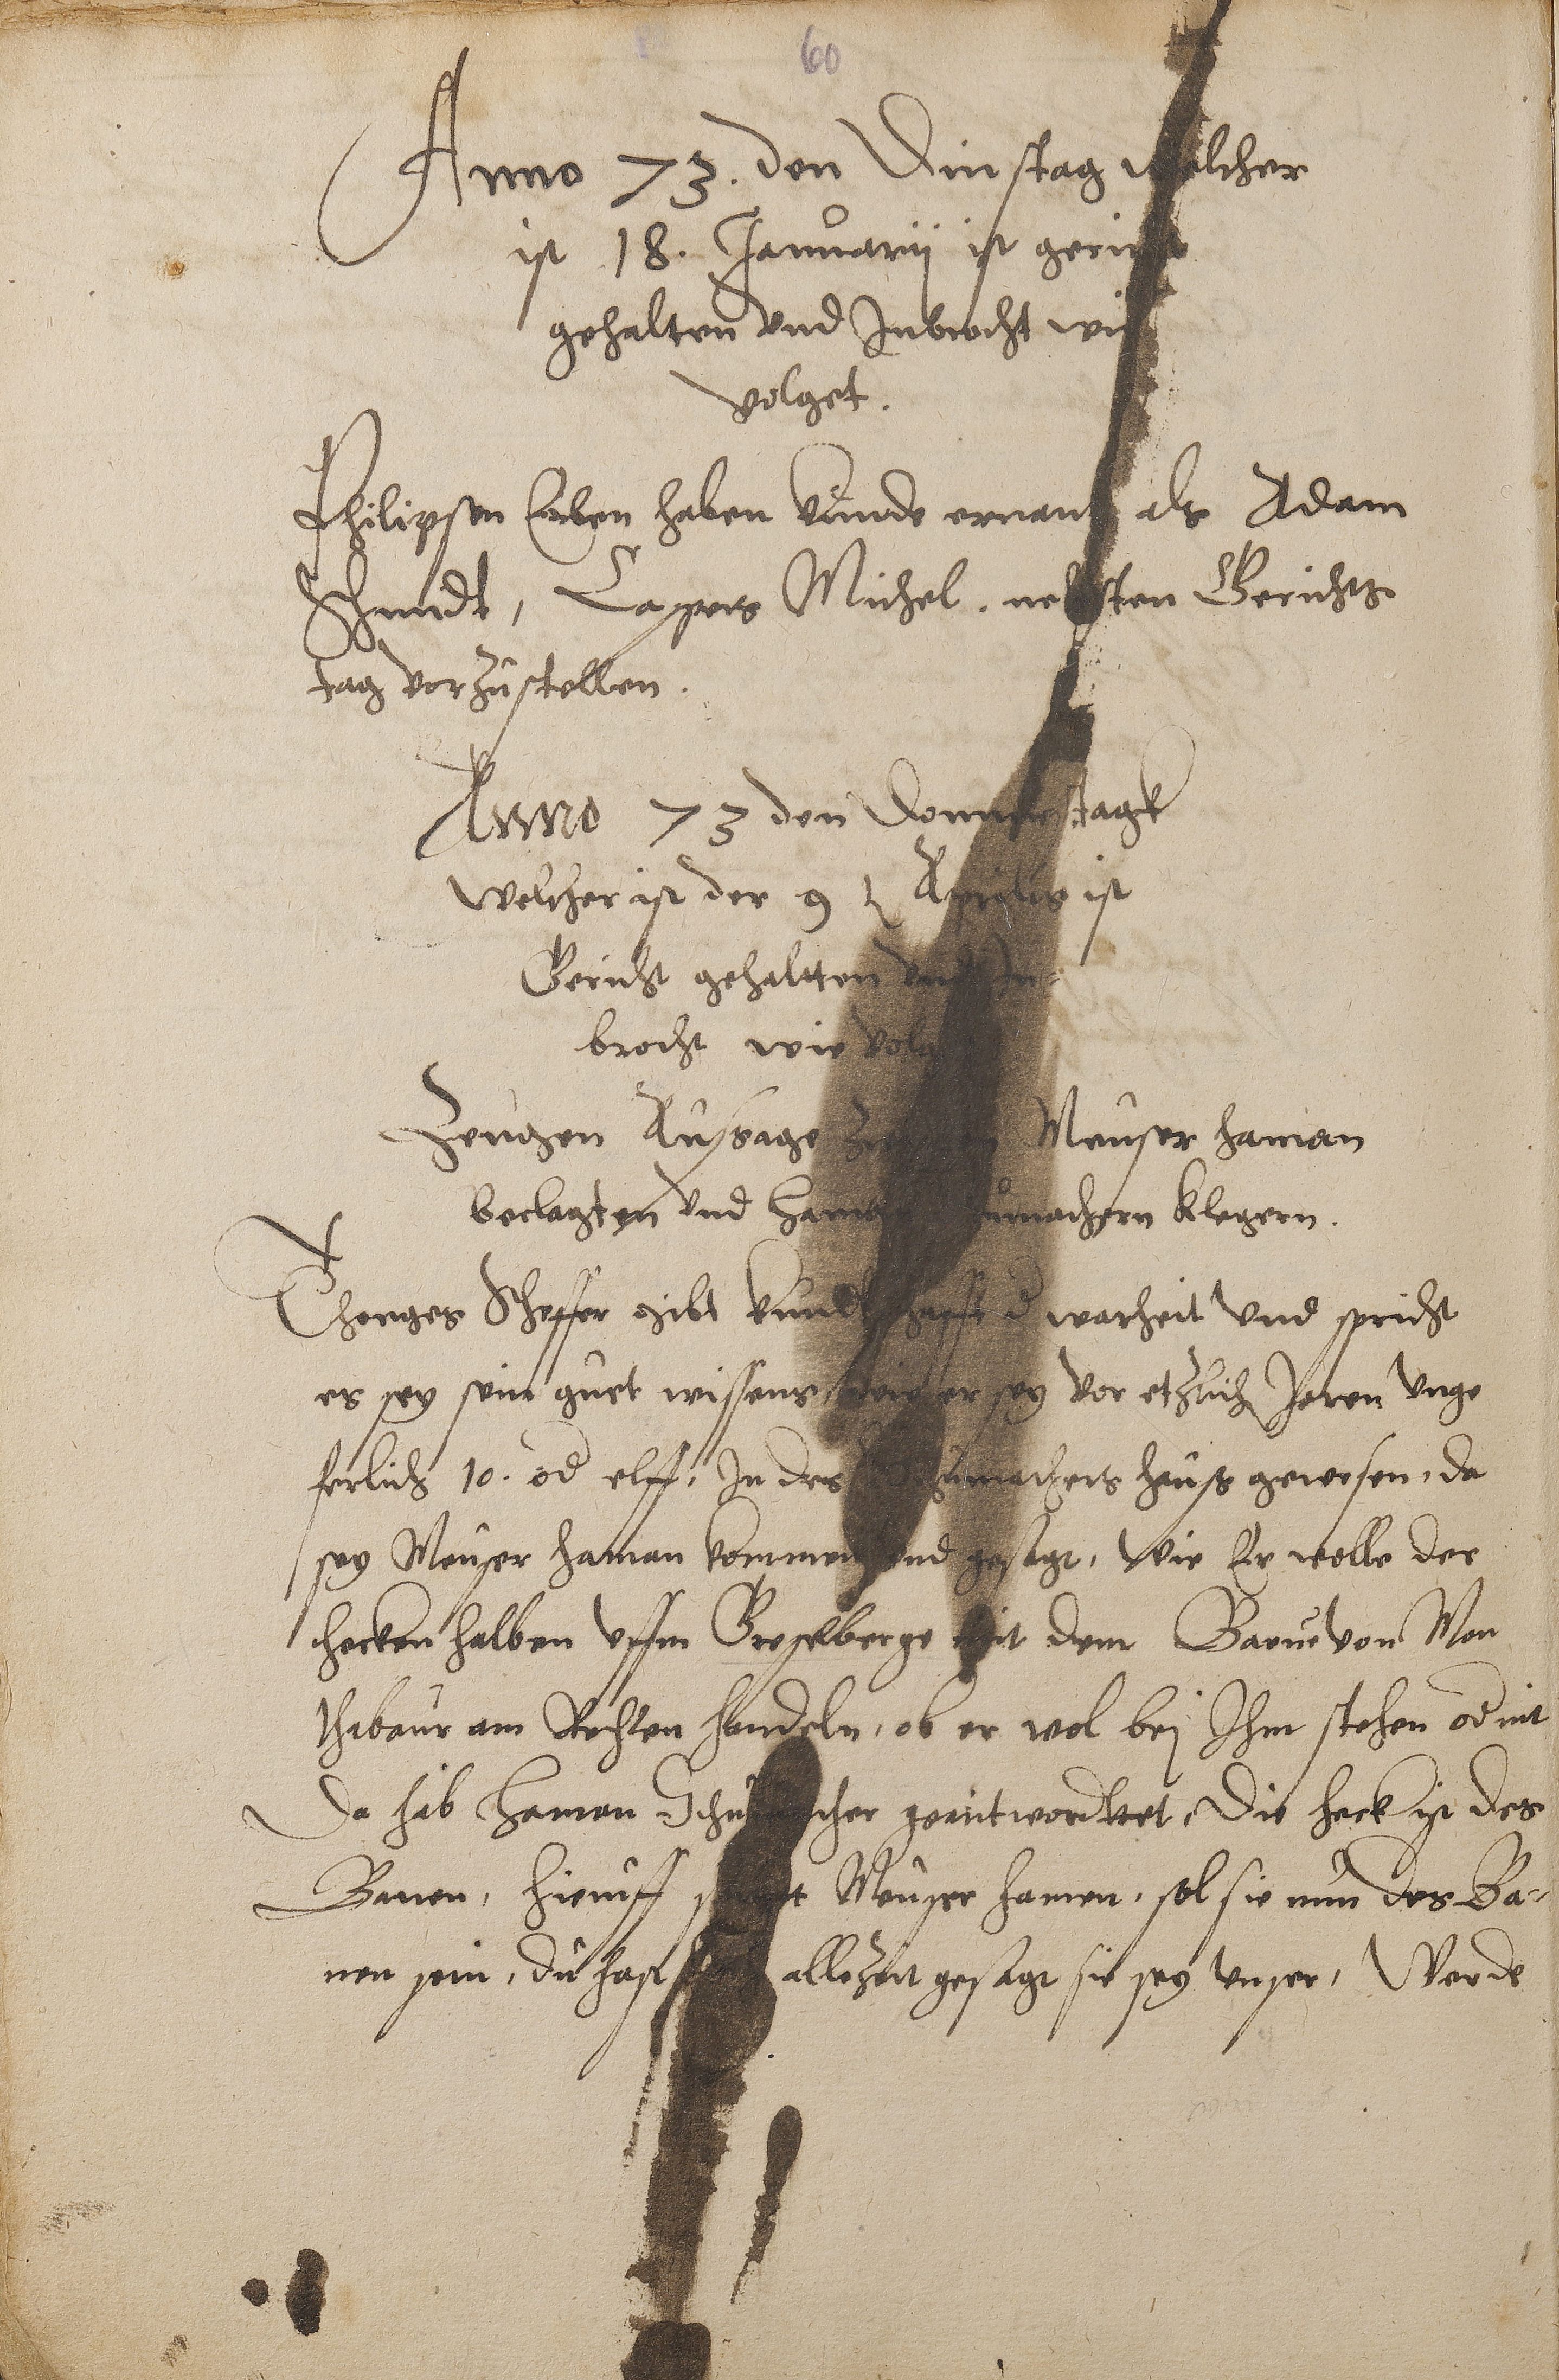 60
Anno 73. den Dinstag welcher
ist 18. Januarij ist gericht
gehalten vnd Inbrocht wie
volget.
Philipsen Erben haben kunde ernant als Adam
Schmidt, Caspers Michel. nehsten Gerichts
tag vorzustellen.
Anno 73 den Donnerstagk
welcher ist der 9 Aprilis ist
Gericht gehaltten vnd In-
brocht wie volg
Zeugen Aussage Meuser haman
beclagten vnd haman machern klegern.
Thonges Scheffer gibt kundtschafft d warheit vnd spricht
es sey sein guet wissens, wie er sey vor etzlich Jaren vnge
ferlich 10. od elff, In des Schumachers hauß gewesen, da
sey Meuser haman kommen vnd gesagt, wie Er wolle der
hecken halben vffm mit dem Bauer von Mon
thabaur am Rechten handeln, ob er wol bei Ihm stehen od nit
Da hab haman Schumacher geantwordtet, Die heck ist des
Bauen, hieruff spricht Meuser haman, sol sie nun des Ba-
uen sein, du hast allezeit gesagt sie sey vnser, Werde